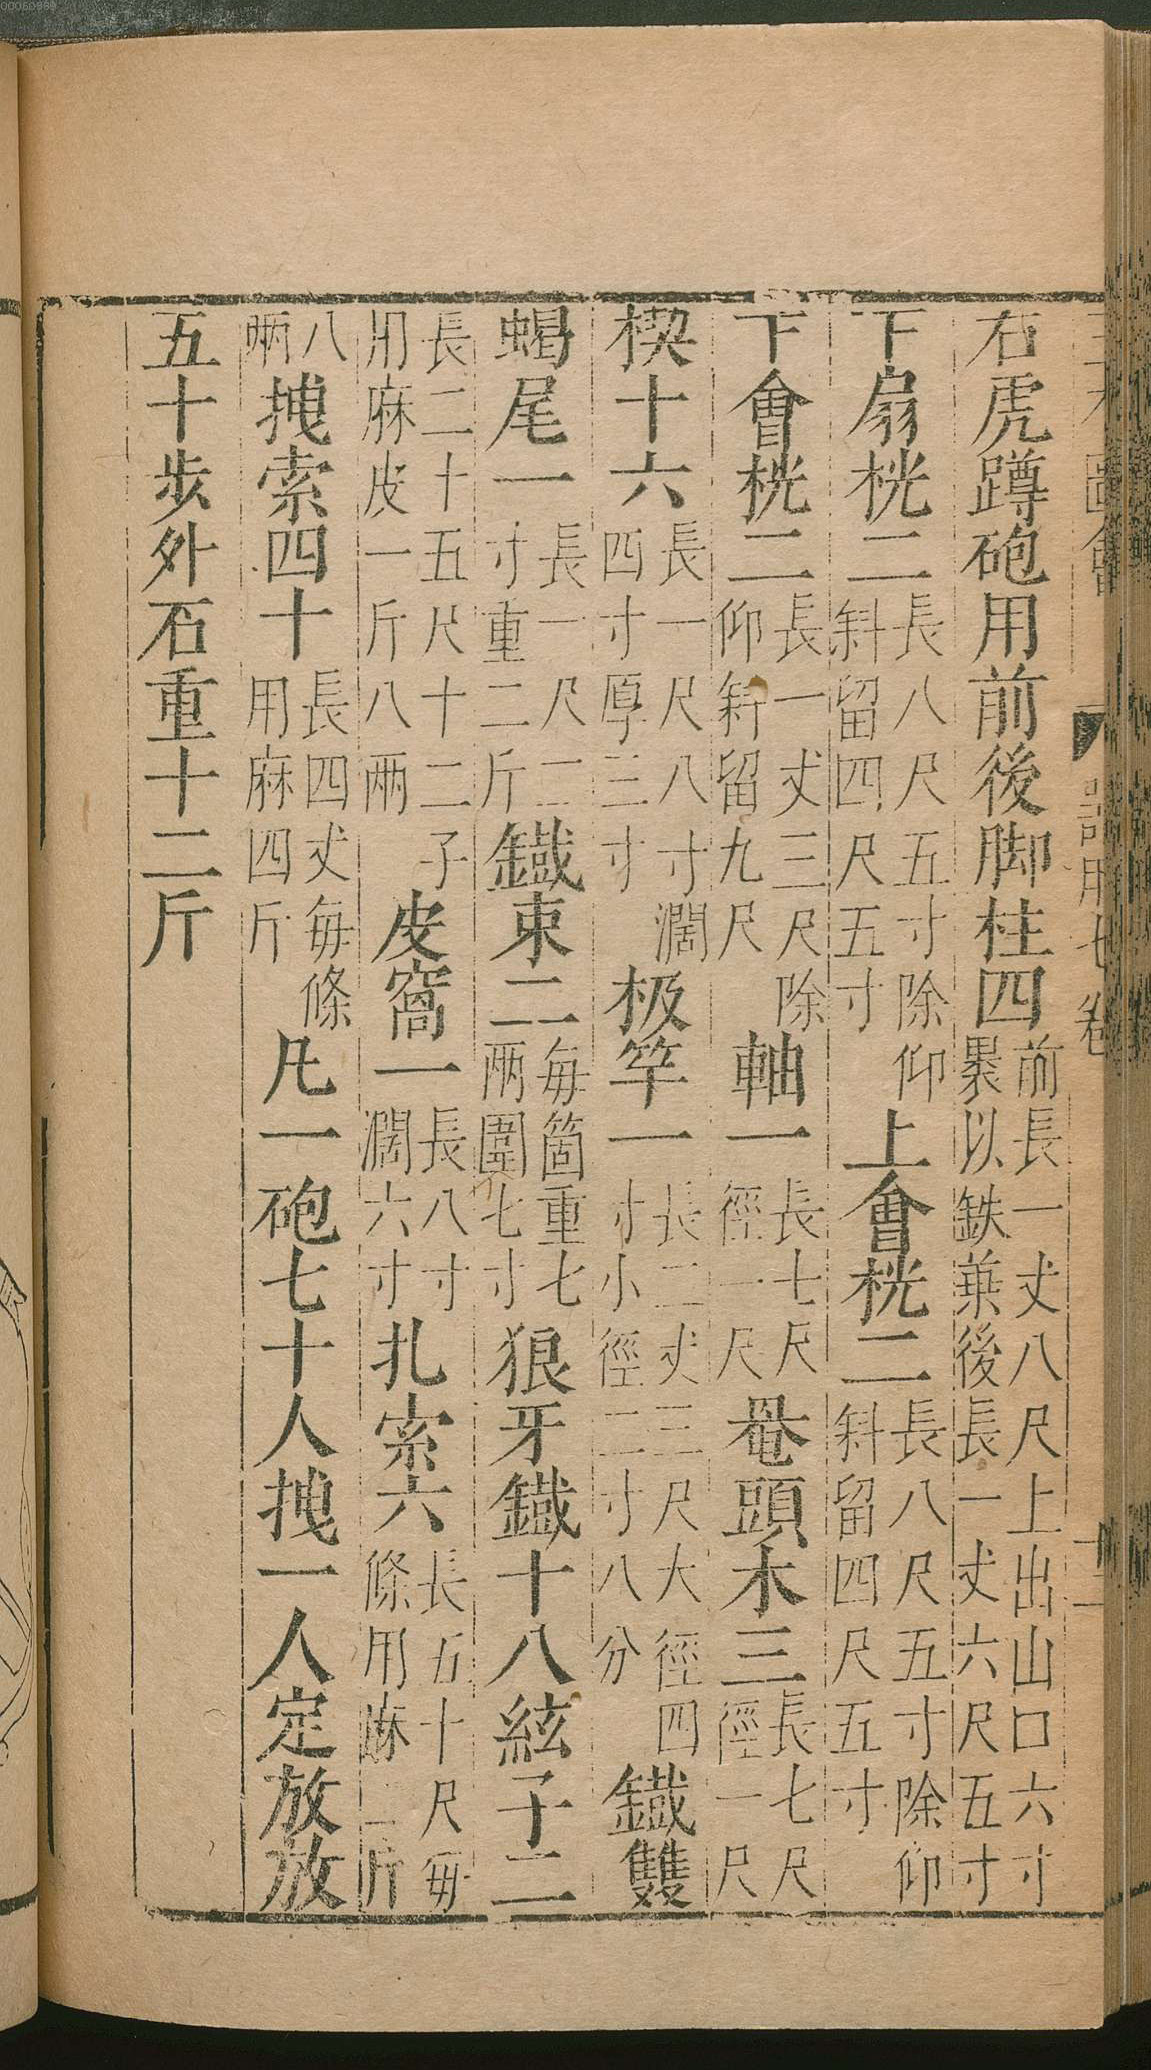 右虎蹲砲用前後脚柱四前長一丈八尺上出山口六寸纍以鉄葉後長一丈六尺五寸
下扇桄二長八尺五寸除仰斜留四尺五寸上會桄二長八尺五寸除仰斜留四尺五寸
下會桄二長一丈三尺除仰斜留九尺軸一長七尺徑一尺黽頭木三長七尺徑一尺
楔十六長一尺八寸濶四寸厚三寸极竿一長二丈三尺大徑四寸小徑二寸八分鐡雙
蝎尾一長一尺二寸重二斤鐡束二每箇重七兩圍七寸狼牙鐡十八絃子二
長二十五尺十二子用麻皮一斤八兩皮窩一長八寸濶六寸扎索六長五十尺每條用麻二斤
八兩拽索四十長四丈每條用麻四斤凡一砲七十人拽一人定放放
五十步外石重十二斤
器用七卷
十二